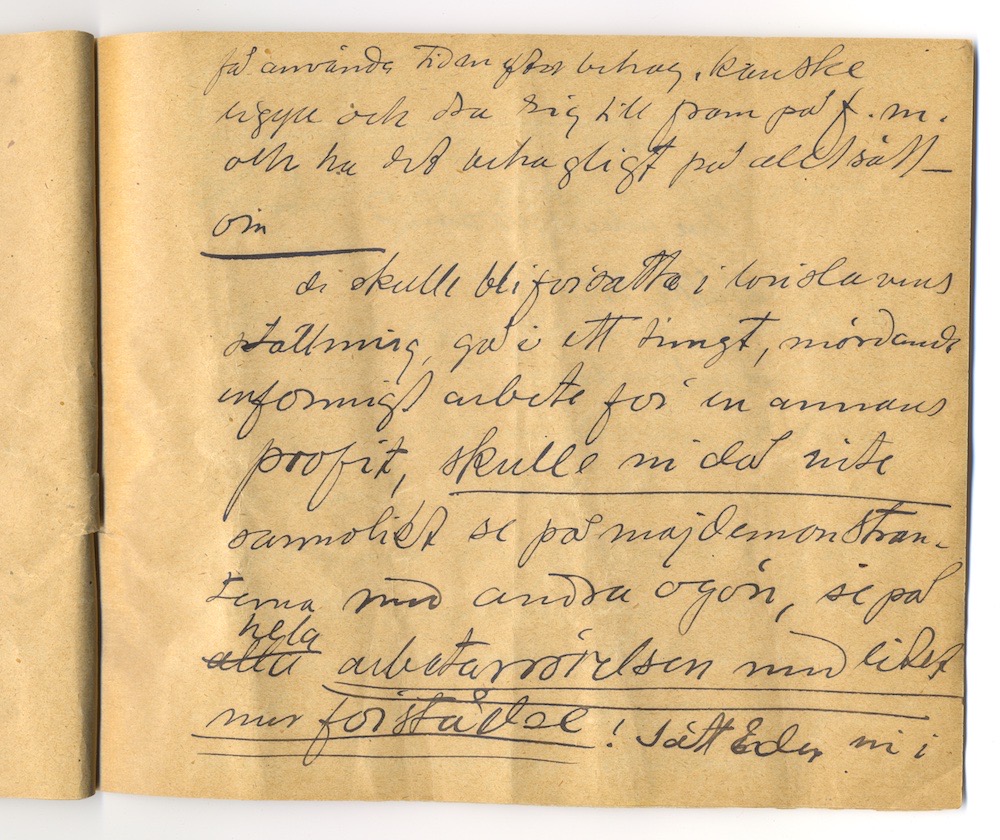 få använda tiden efter behag, kanske
ligga och dra sig till fram på f. m.
och ha det behagligt på allt sätt –
om
de skulle bli försatta i löneslavens
ställning, gå i ett tungt, mördande
enformigt arbete för en annans
profit, skulle ni då inte
sannolikt se på majdemonstran-
terna med andra ögon, se på
hela
alla arbetarrörelsen med litet
mer förståelse! Sätt Eder ni i